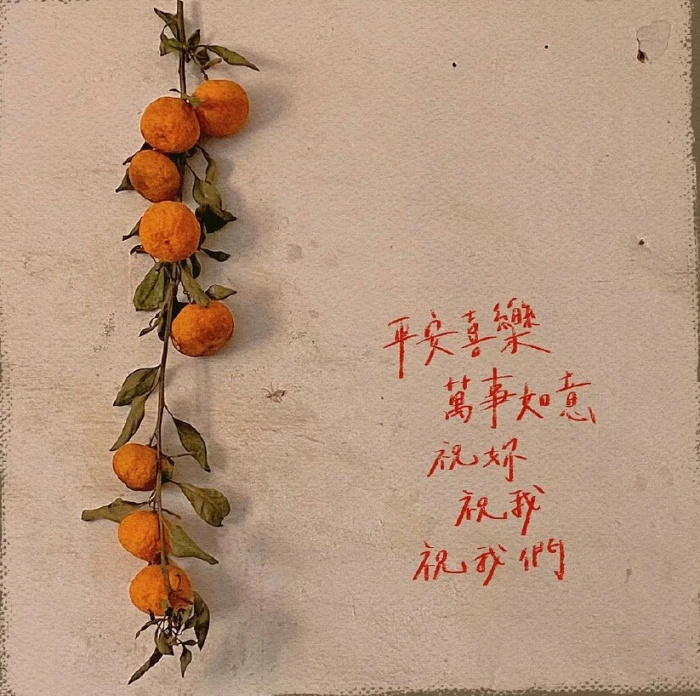 平安喜樂
萬事如意
祝妳
祝我
祝我們